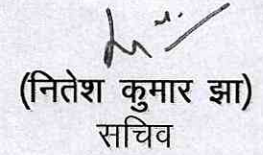 (नितेश कुमार झा)
सचिव